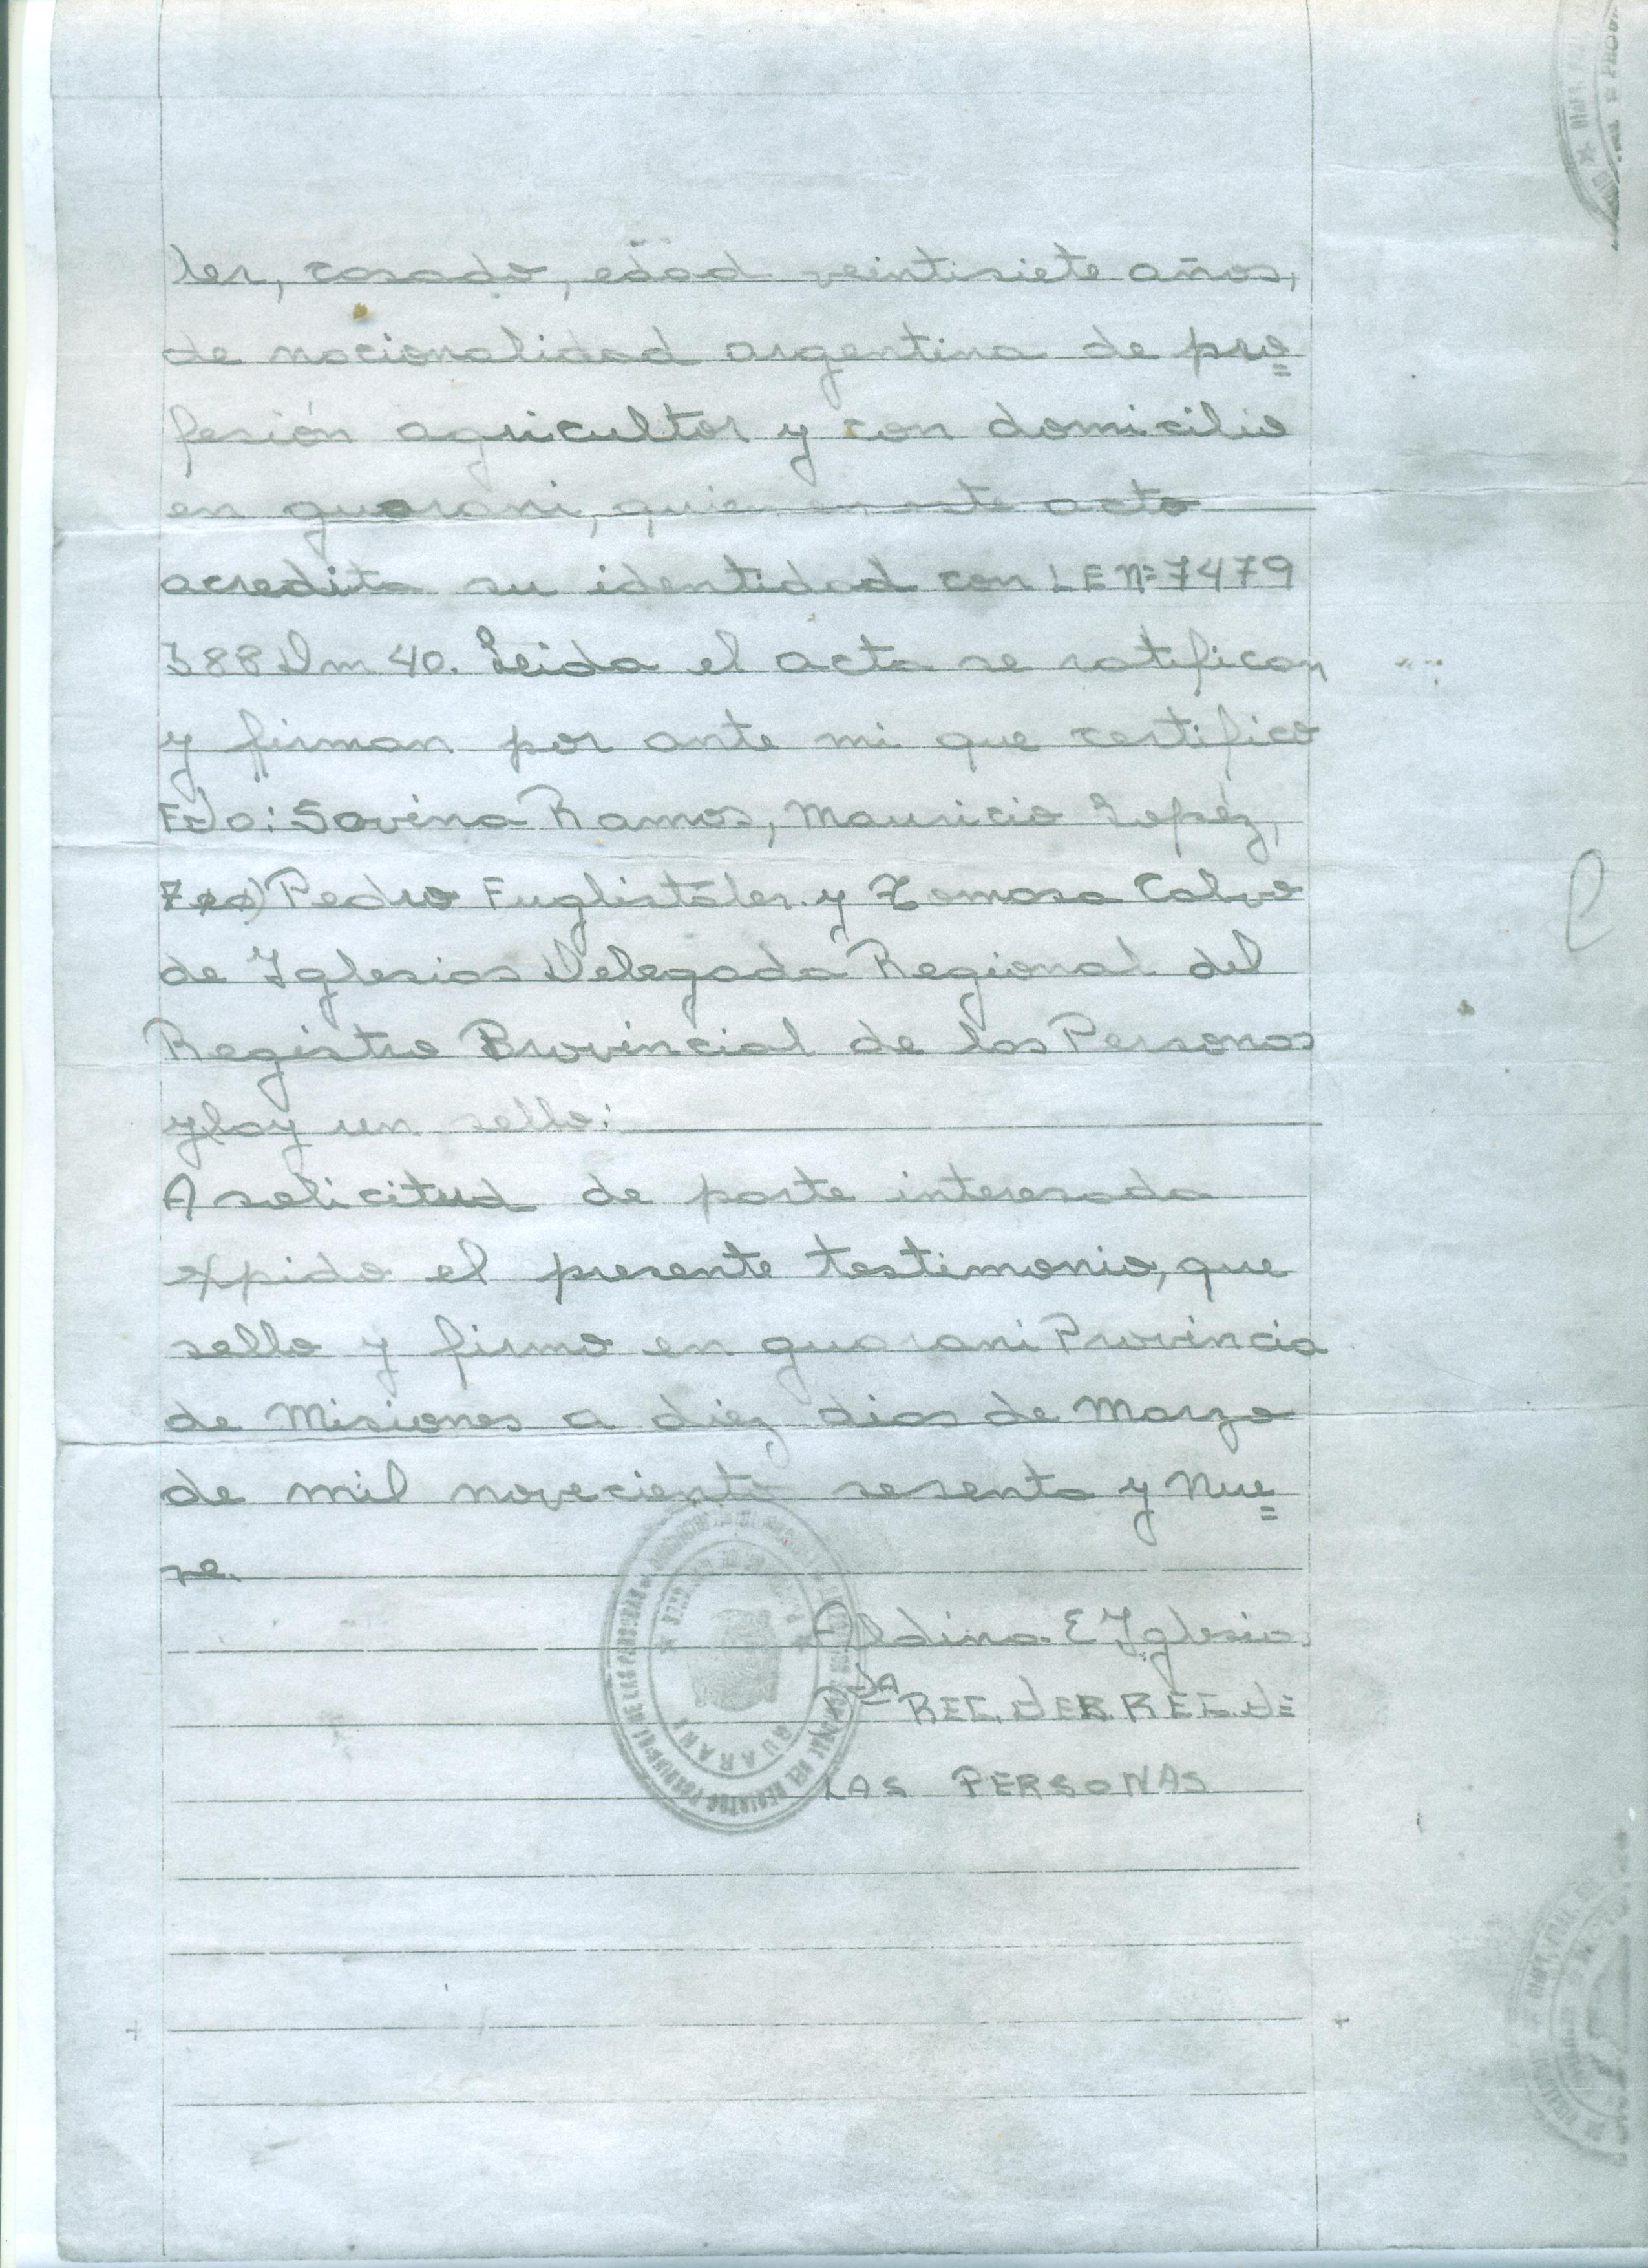 ler, casado, edad veintisiete años,
de nacionalidad argentina de pro=
fesión agricultor y con domicilio
en guarani, quien en este acto
acredita su identidad con LE Nº 7479
388 Dm 40. Leida el acta se ratifican
y firman por ante mi que certifico
Fdo: Savina Ramos, Mauricio Lopéz,
Pedro Fuglistáler y Tomasa Calvo
de Iglesias Delegada Regional del
Registro Provincial de las Personas
y hay un sello:
A solicitud de parte interesada
expido el presente testimonio, que
sello y firmo en guarani Provincia
de Misiones a diez dias de Marzo
de mil noveciento sesenta y Nue=
ve.
Aldina E Iglesias
REG. DER REG. de
LAS PERSONAS
GUARANI